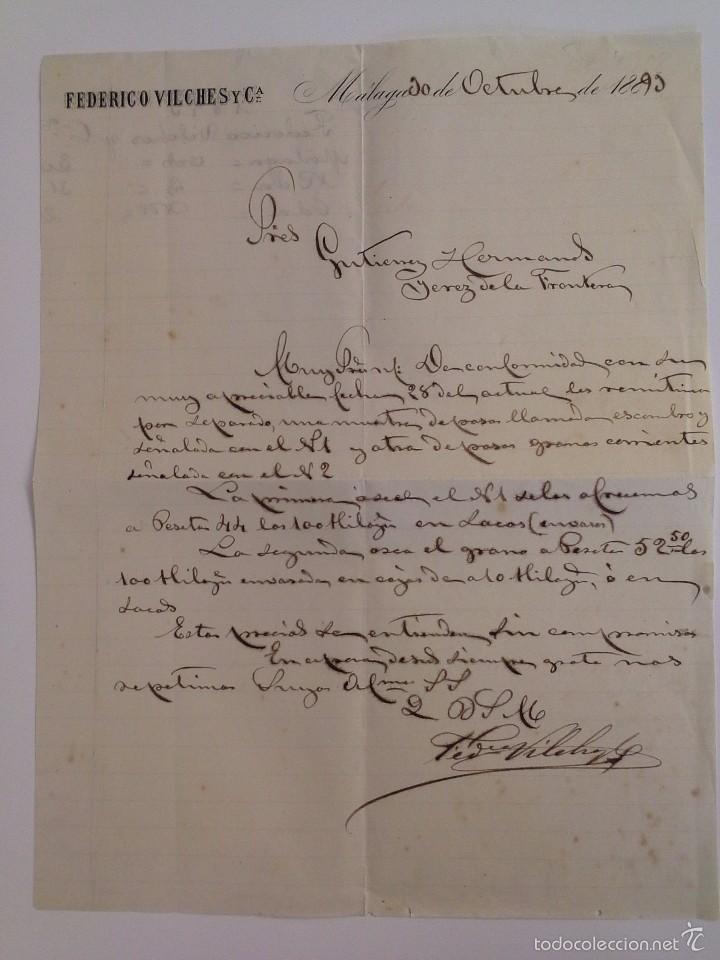 FEDERICO VILCHES Y Cª
Málaga 30 de Octubre de 1893
Sres Gutierrez Hermanos
Jerez de la Frontera
Muy Sres ns: De conformidad con su
muy apreciable fecha 28 del actual les remitimos
por separado, una muestra de pasas llamada escombro y
señalada con el Nº1 y otra de pasas granos corrientes
señalada con el Nº2
La primera ósea el Nº1 se las ofrecemos
a Pesetas 44 los 100 Kilogs en Sacos (envases)
La segunda osea el grano a Pesetas 52 50 los
100 Kilogs envasada en cajas de a 10 Kilogs, ó en
sacos
Estos precios se entienden sin compromiso
En espera de sus siempre gratas nos
repetimos Suyos Afmos SS
Q B S M
Fedco Vilches y Cª
todocoleccion.net